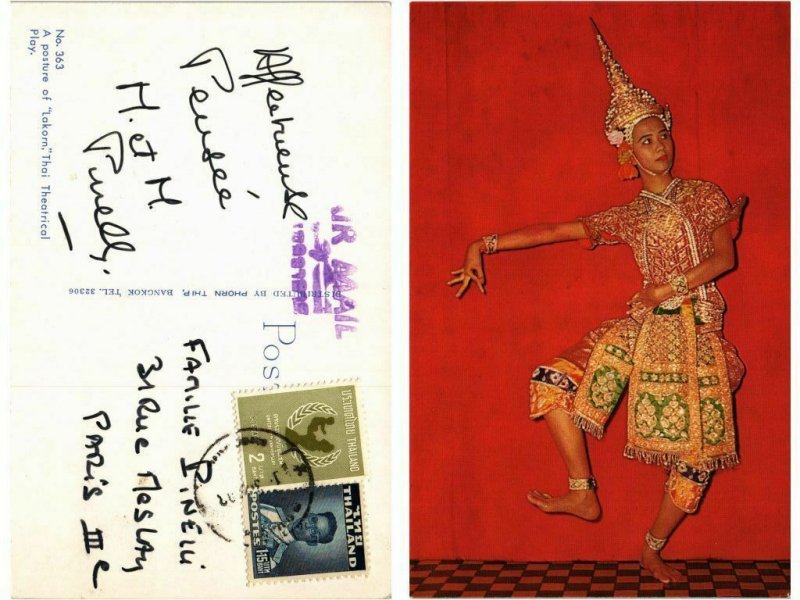 No. 363
A posture of "Lakorn," Thai Theatrical
Play.
Affectueuse
Pensée
M. et M.
Pinelli.
AIR MAIL
DISTRIBUTED BY PHORN THIP, BANGKOK TEL. 32306
Pos
FAMILLE PINELLI
31 RUE MESLAY
PARIS IIIe
ประเทศไทย THAILAND
2
THAILAND
POSTES
1.15
BAHT